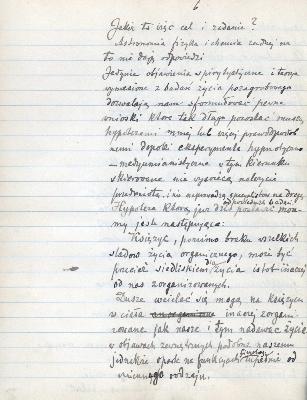 6
Jakiż to więc cel i zadanie?
Astronomia fizyka i chemia żadnej na
to nie dają odpowiedzi
Jedynie objawienia spirytystyczne i teorye
wyniesione z badań życia pozagrobowego
dozwalają nam sformułować pewne
wnioski które tak długo pozostać muszą
hypotezami mniej lub więcej prawdopodob
nemi dopóki eksperymenta hypnotyczno
- medyumianistyczne w tym kierunku
skierowane nie wyświecą należycie
przedmiotu i nie naprowadzą na drogę
Hypoteza którą już dziś postawić może
my jest następująca:
Księżyc, pomimo braku wszelkich
śladów życia organicznego, może być
przecież siedliskiem dla życia istot inaczej
od nas zorganizowanych.
Dusze wcielać się mogą na księżycu
w ciała inaczej zorgani
zowane jak nasze i tym nadawać życie
w objawach zewnętrznych podobne naszemu
jednakże oparte na funkcyach zupełnie od
miennego rodzaju.